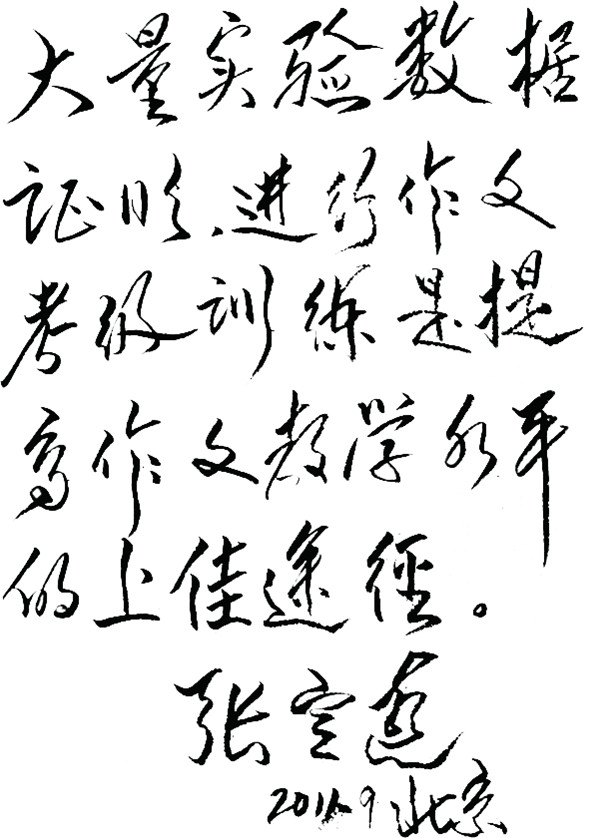 大量实验数据
证明,进行作文
考级训练是提
高作文教学水平
的上佳途径。
张定远
2011.9 北京